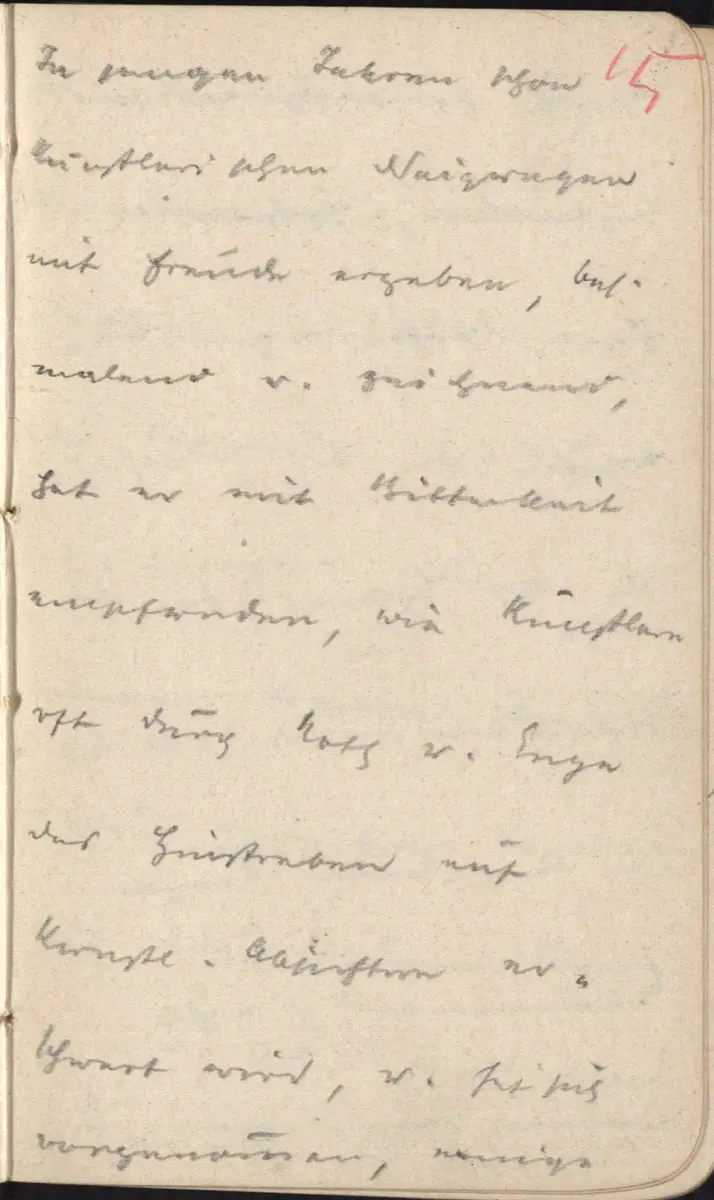 In jungen Jahren schon 15
künstlerischen Neigungen
mit Freude ergeben,
malend u. zeichnend,
hat er mit Bitterkeit
empfunden, wie Künstlern
oft durch Noth u. Enge
das Hinstreben auf
künstl. Absichten er=
schwert wird, u. hat sich
vorgenom̅en, einige